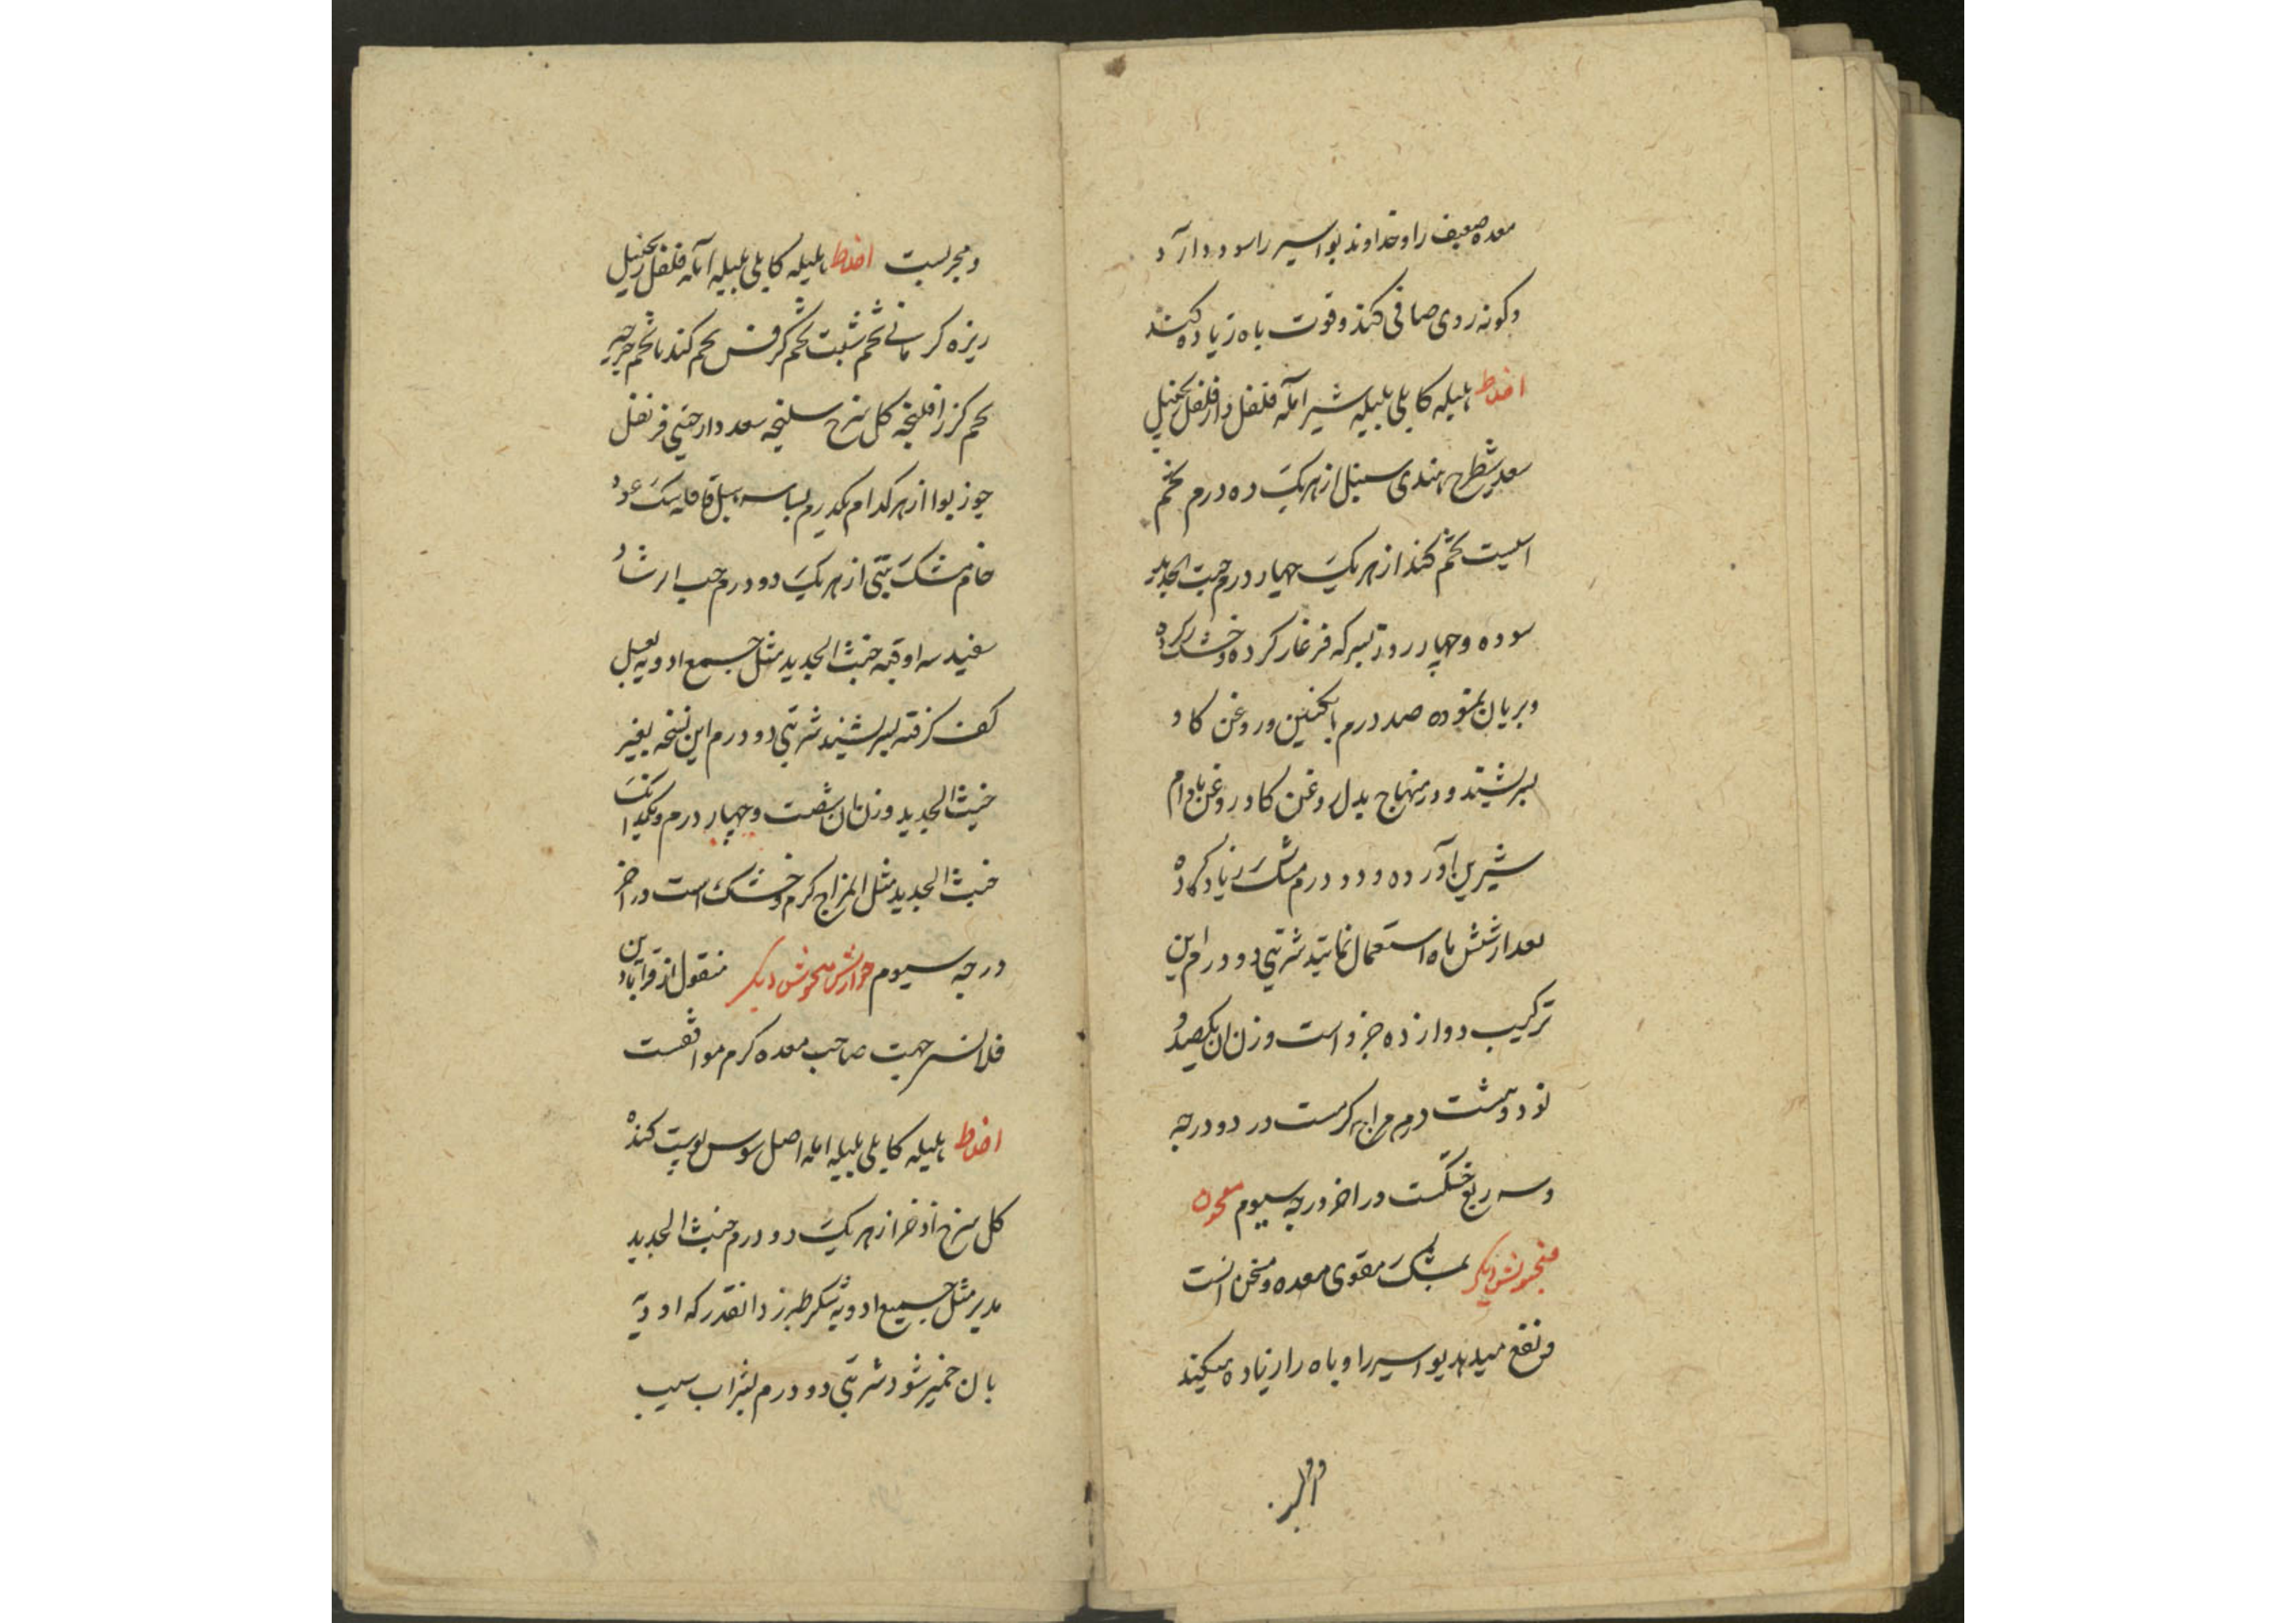 معده ضعیف را و خداوند بواسیر را سود دارد
و کونه روی صافی کند و قوت باه زیاده کند
اخلاط هلیله کابلی بلیله شیر آمله فلفل دارفلفل زنجبیل
سعد شطرح هندی سنبل از هر یک ده درم تخم
اسبست تخم کندنا از هر یک چهار درم خبث الحدید
سوده و چهار روز بسرکه فرغار کرده و خشک کرده
و بریان نموده صد درم بانکبین و روغن کاو
بسرشند و در منهاج بدل روغن کاو روغن بادام
شیرین آورده و دو درم مشک زیاد کرده
بعد از شش ماه استعمال نمایند شربتی دو درم این
ترکیب دوازده جزو است وزن ان یکصد و
نود و هشت درم مزاجه کرمست در دو درجه
و سه ربع خشکست در اخر درجه سیوم معجون
فنجنوش دیکر بمشک مقوی معده و مسخن انست
و نفع میدهد بواسیر را و باه را زیاده میکند
و مجربست اخلاط هلیله کابلی بلیله آمله فلفل زنجبیل
زیره کرمانی تخم شبت تخم کرفس تخم کندنا تخم جرجیر
تخم کزر افلنجه کل سرخ سلیخه سعد دارچینی قرنفل
جوز بوا از هر کدام یکدرم بسباسه هیل قاقله سک عود
خام مشک تبتی از هر یک دو درم حب الرشاد
سفید سه اوقیه خبث الحدید مثل جمیع ادویه بعسل
کف کرفته بسرشند شربتی دو درم این نسخه بغیر
خبث الحدید وزن ان شصت و چهار درم و یکدانک
خبث الحدید مثل المزاج کرم و خشک است در اخر
درجه سیوم جوارش فنجنوش دیکر منقول از قرابادین
فلانسی جهت صاحب معده کرم موافقست
اخلاط هلیله کابلی بلیله امله اصل سوس پوست کنده
کل سرخ اذخر از هر یک دو درم خبث الحدید
مدبر مثل جمیع ادویه شکر طبرزد انقدر که ادویه
بان خمیر شود شربتی دو درم بشراب سیب